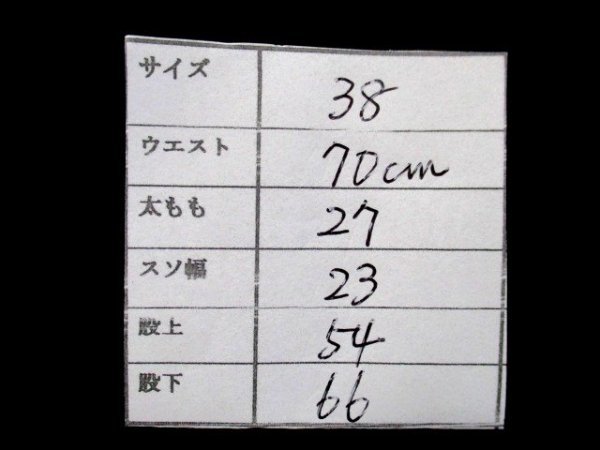 サイズ 38
ウエスト 70cm
太もも 27
スソ幅 23
股上 54
股下 66